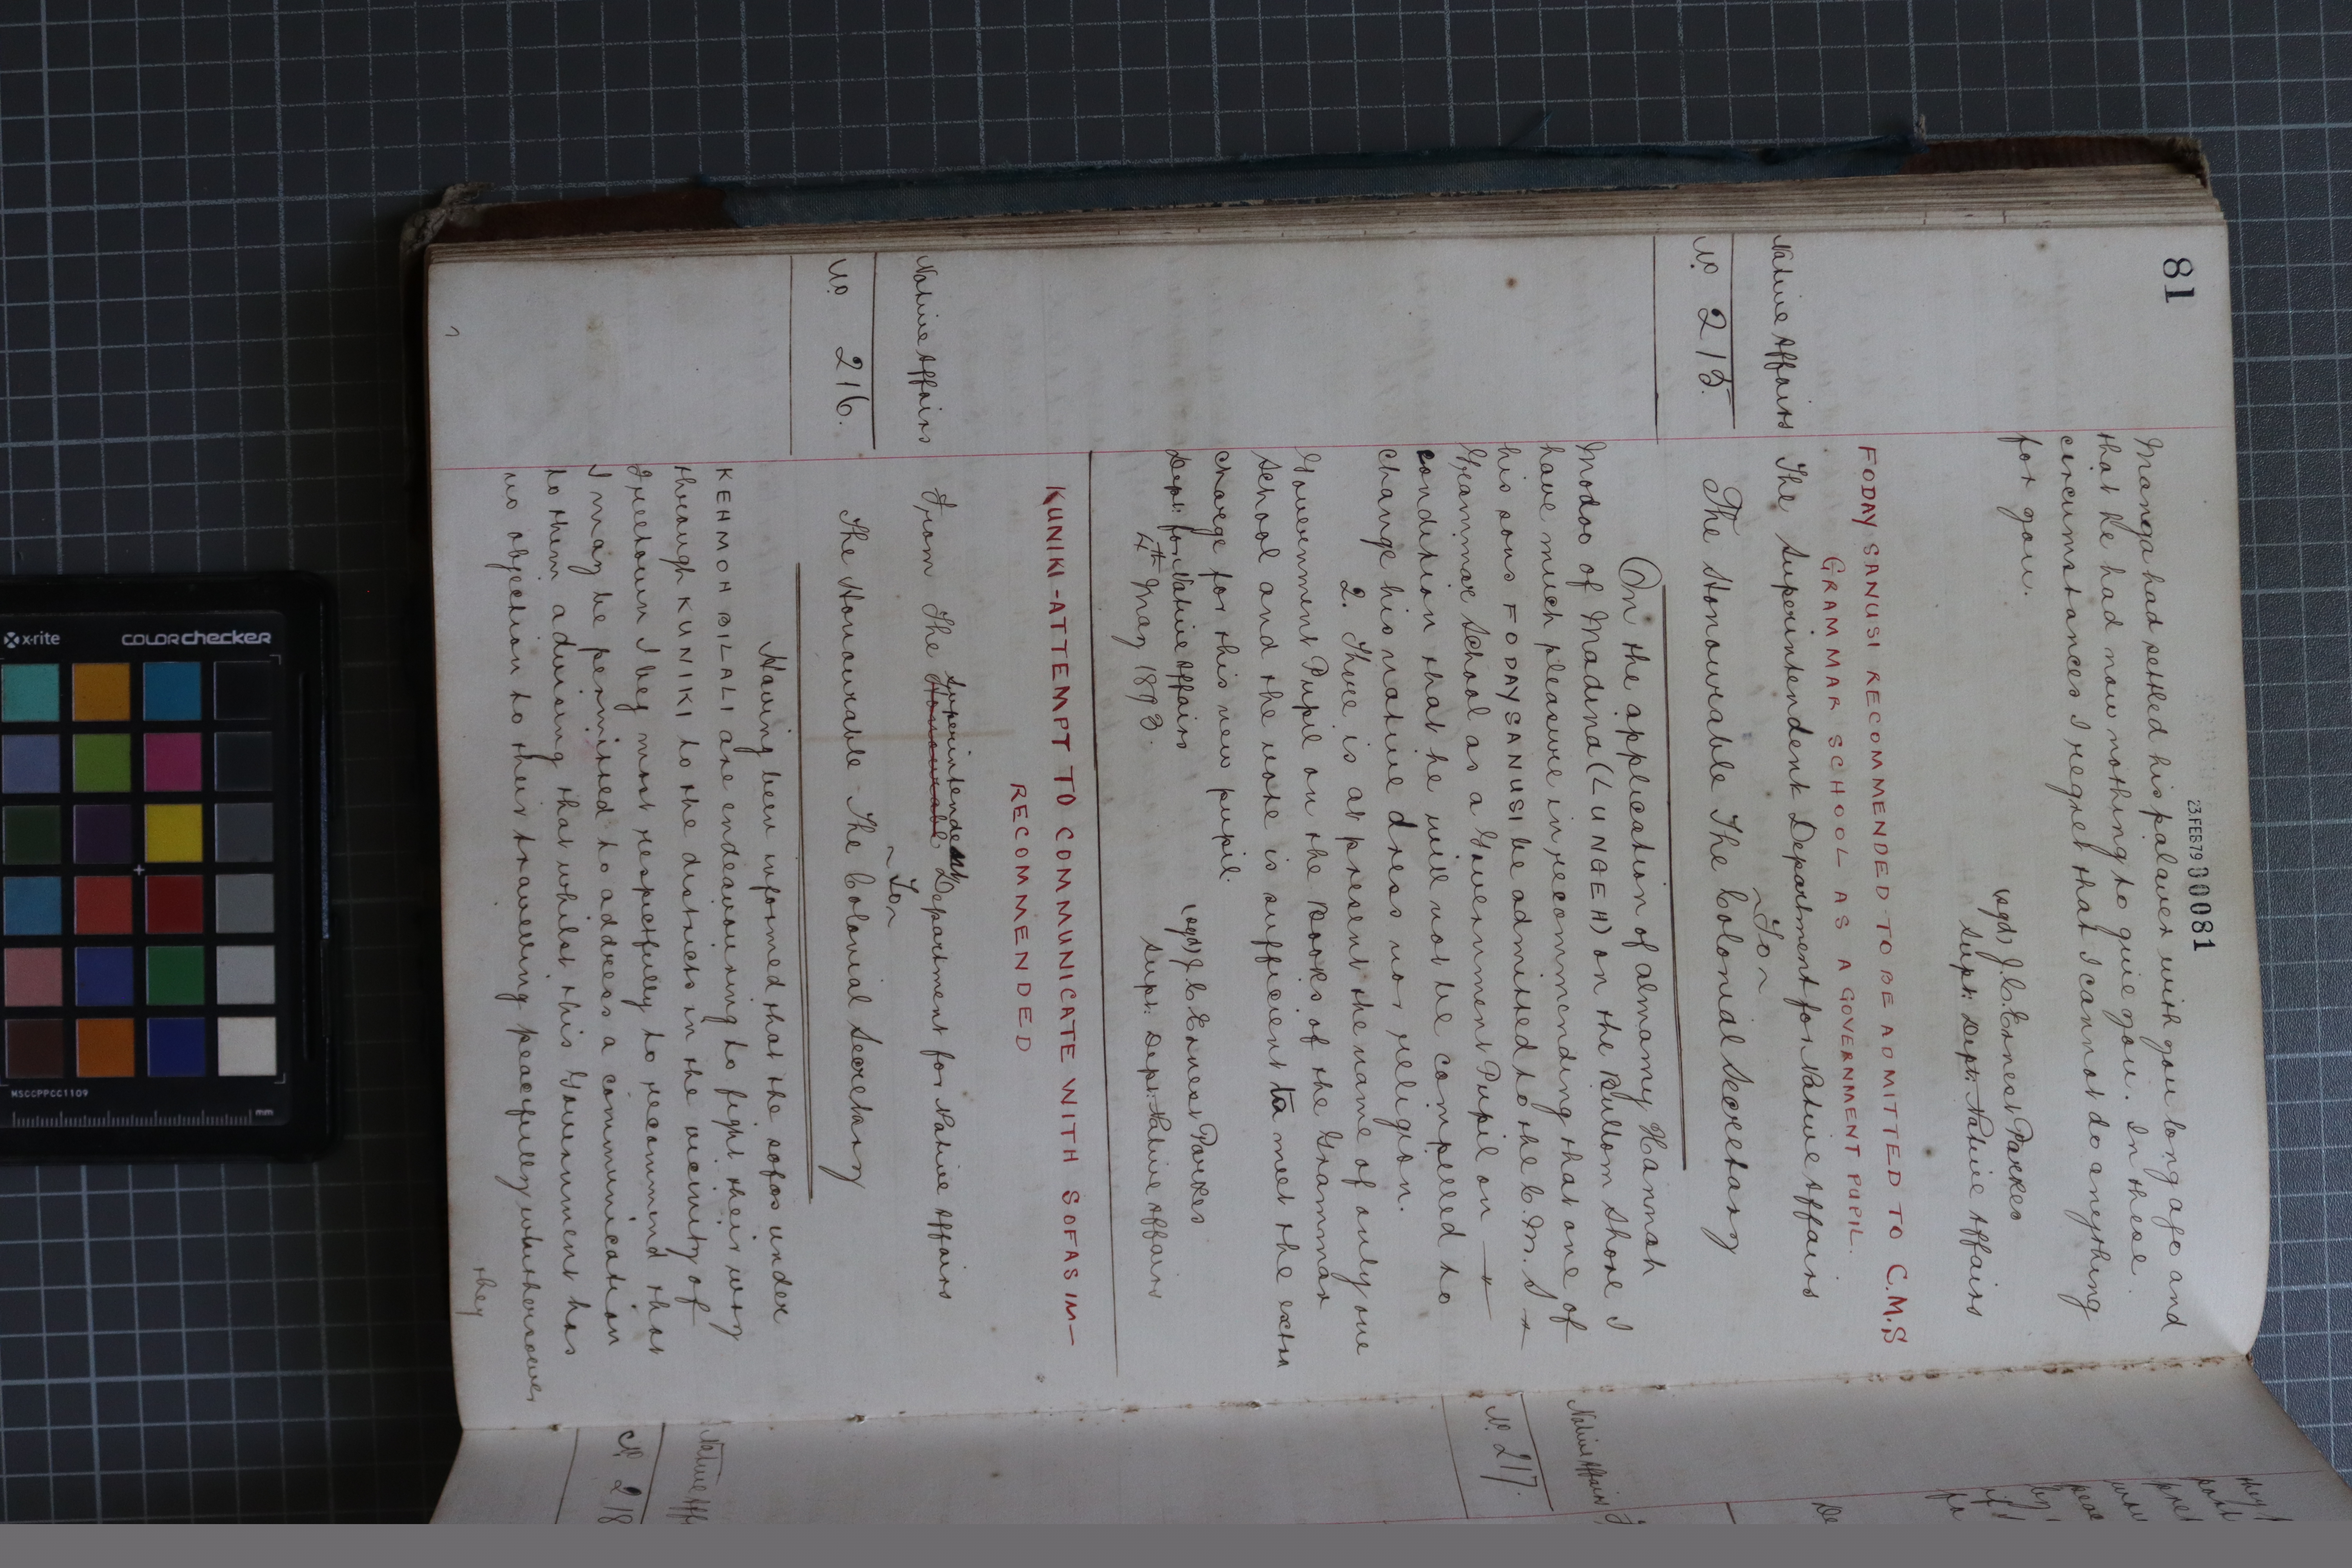 81
23 FEB 79 80081
Manga had settled his palaver with you long ago and
that he had now nothing to give you. In these
circumstances I regret that I cannot do anything
for you.
(sgd) J. C. Ernest Parkes
Supt: Dept: Native Affairs
FODAY SANUSI RECOMMENDED TO BE ADMITTED TO C.M.S
GRAMMAR SCHOOL AS A GOVERNMENT PUPIL.
Native Affairs
The Superintendent Department for Native Affairs
~ To ~
No. 215.
The Honourable The Colonial Secretary
On the application of Almamy Hannah
Modoo of Madina (LUNGEH) on the Bullom Shore I
have much pleasure in recommending that one of
his sons FODAY SANUSI be admitted to the C. M. S
Grammar School as a Government Pupil on
condition that he will not be compelled to
change his native dress nor religion.
2. There is at present the name of only one
Government Pupil on the Books of the Grammar
School and the vote is sufficient to meet the extra
charge for this new pupil.
(sgd) J C Ernest Parkes
Dept: for Native Affairs
Supt: Dept: Native Affairs
4th May 1893.
KUNIKI - ATTEMPT TO COMMUNICATE WITH SOFAS IM-
RECOMMENDED
Native Affairs
Superintendent
From The Honourable Department for Native Affairs
~ To ~
No 216.
The Honourable The Colonial Secretary
Having been informed that the sofas under
KEHMOH BILALI are endeavouring to fight their way
through KUNIKI to the districts in the vicinity of
Freetown I beg most respectfully to recommend that
I may be permitted to address a communication
to them advising that whilst this Government has
no objection to their travelling peacefully whithersoever
they
Native Affairs
No. 217.
No 218